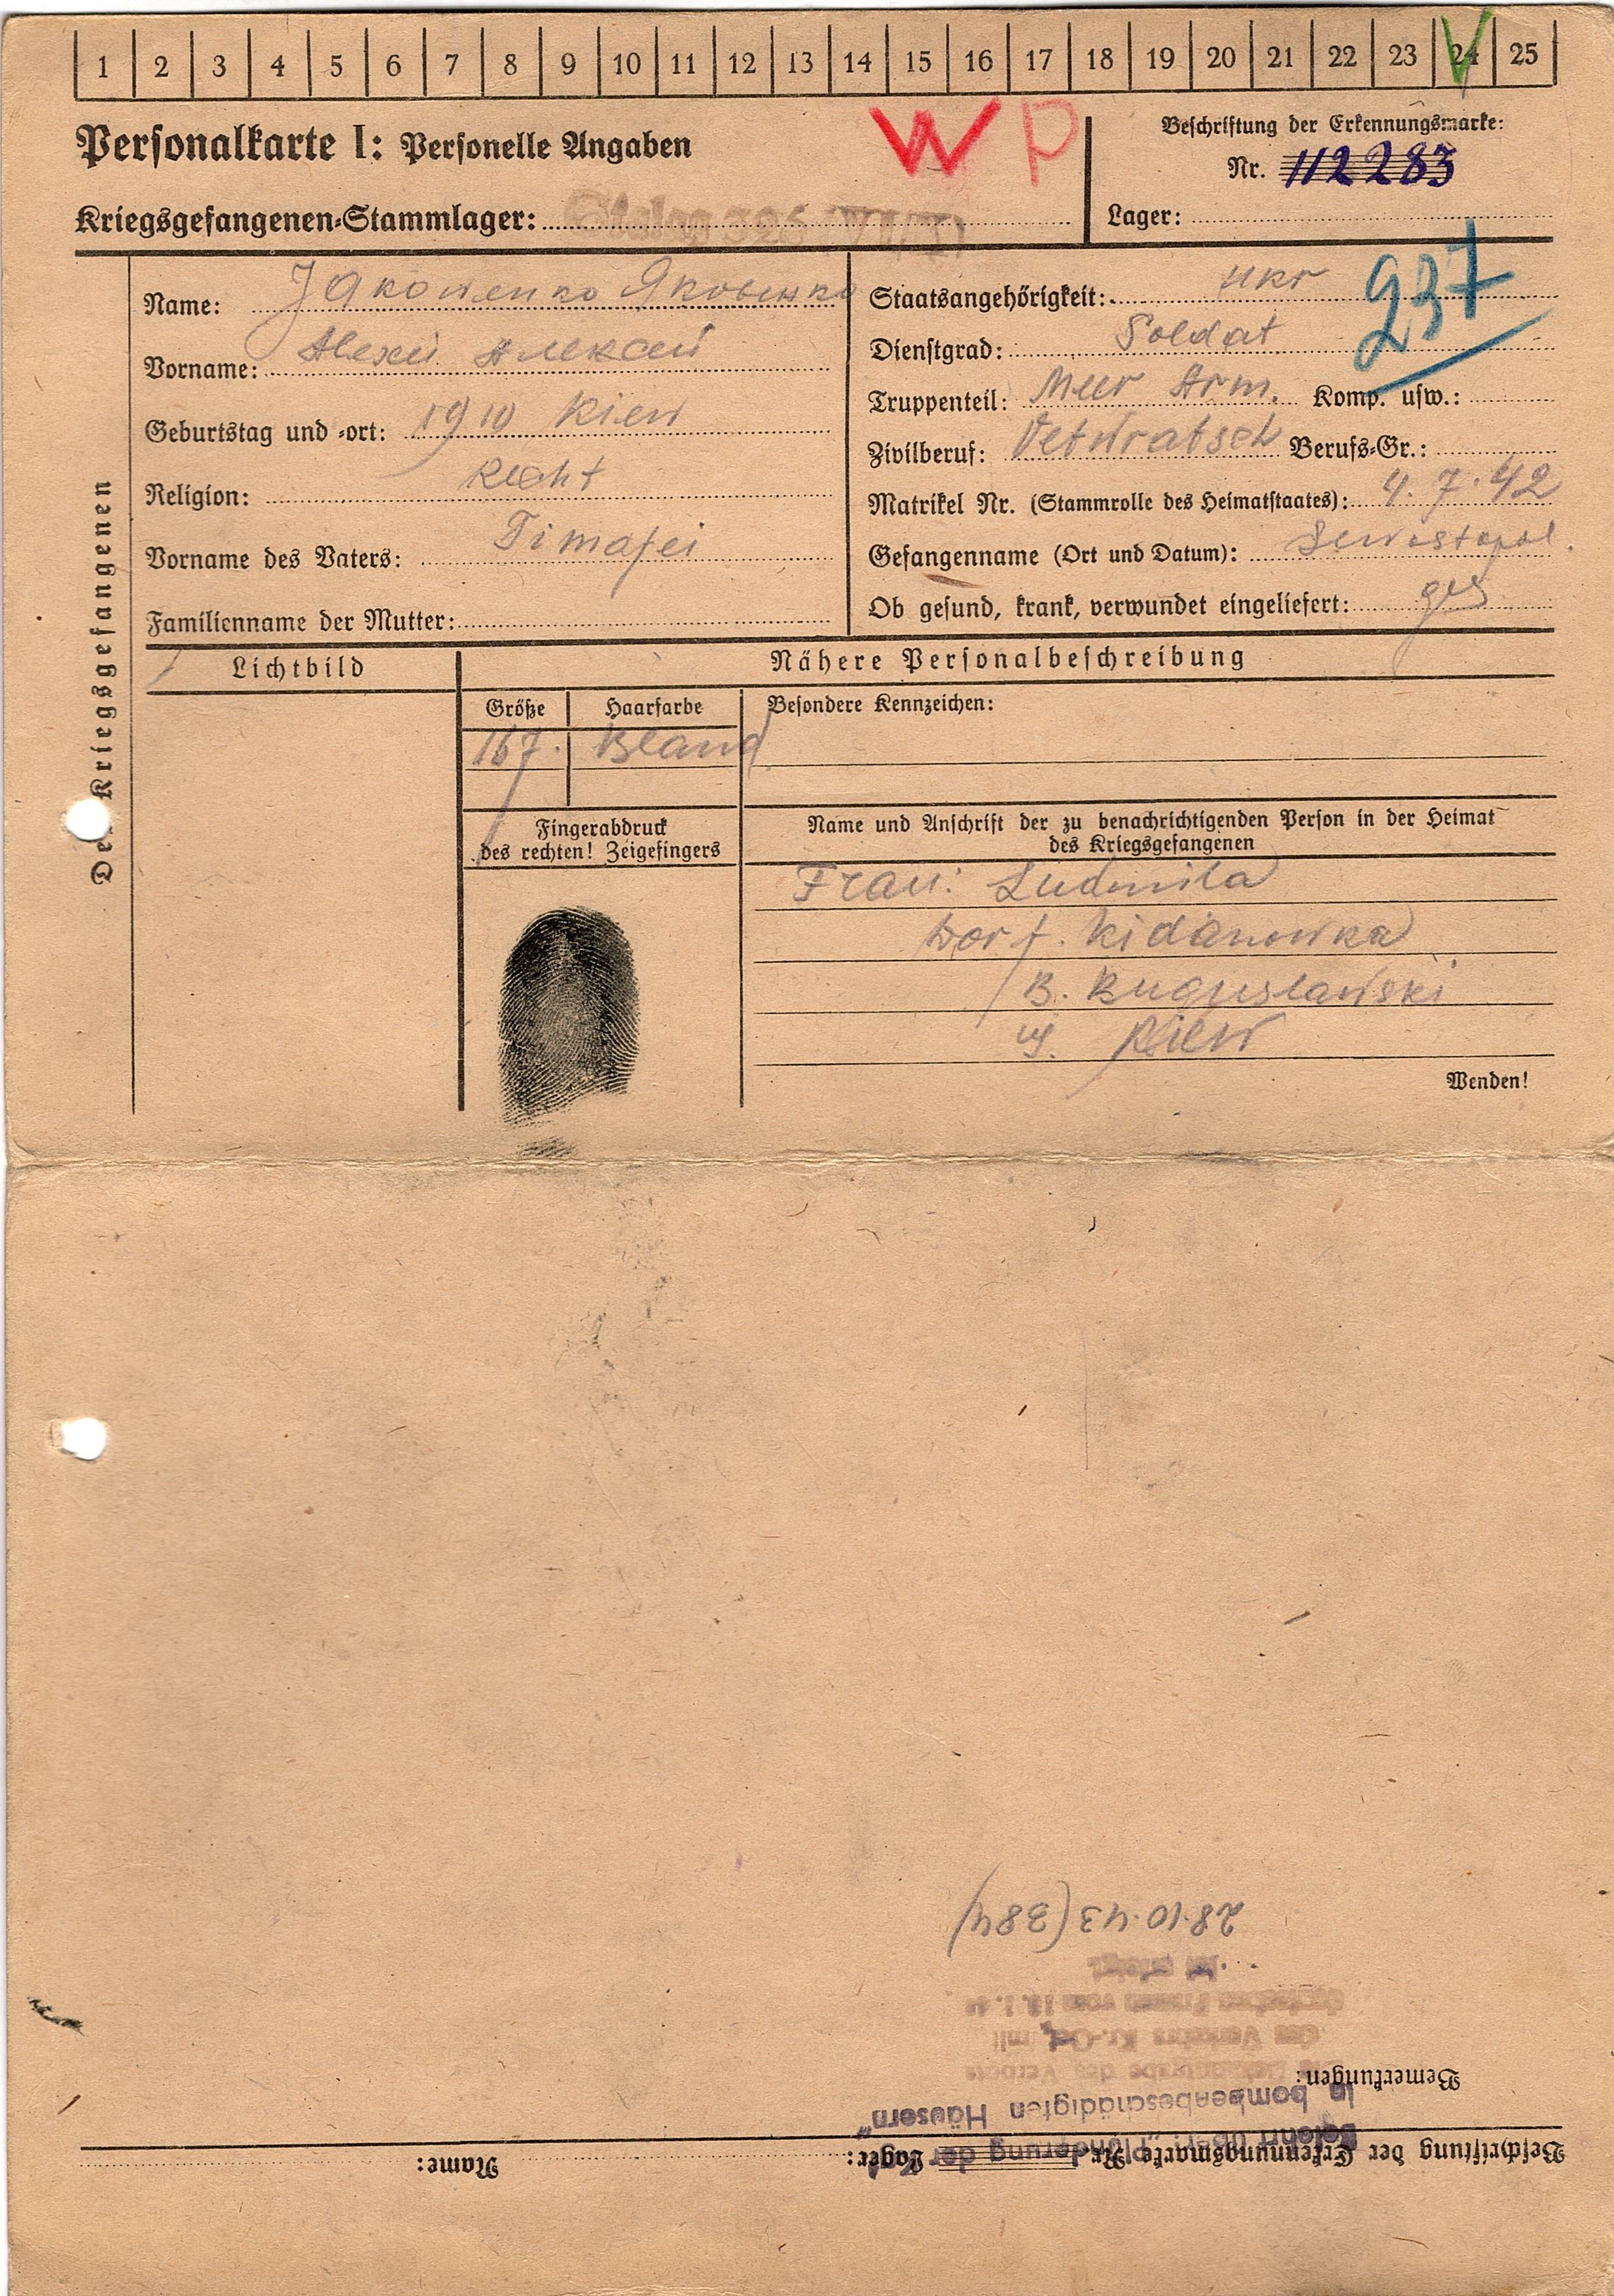 1 2 3 4 5 6 7 8 9 10 11 12 13 14 15 16 17 18 19 20 21 22 23 24 25
Personalkarte I: Personelle Angaben
W P
Beschriftung der Erkennungsmarke:
Nr. 112283
Kriegsgefangenen-Stammlager: Stalag 326 (VI K)
Lager:
Der Kriegsgefangenen
Name: Jakowenko Яковенко
Vorname: Alexei Алексей
Geburtstag und -ort: 1910 Kiew
Religion:
Vorname des Vaters: Timofei
Familienname der Mutter:
Staatsangehörigkeit: Ukr
237
Dienstgrad: Soldat
Truppenteil: Meer Arm. Komp. usw.:
Zivilberuf: Berufs-Gr.:
Matrikel Nr. (Stammrolle des Heimatstaates): 4.7.42
Gefangenname (Ort und Datum): Sewastopol.
Ob gesund, krank, verwundet eingeliefert: ges
Lichtbild
Nähere Personalbeschreibung
Größe
Haarfarbe
Besondere Kennzeichen:
167. Bland
Fingerabdruck
des rechten! Zeigefingers
Name und Anschrift der zu benachrichtigenden Person in der Heimat
des Kriegsgefangenen
Frau: Ludmila
Dorf. Kidanowka
B. Buguslawski
Kiew
Wenden!
Beschriftung der Erkennungsmarke Nr. Lager: Name:
Belehrt über: „Plünderung der
in bombenbeschädigten Häusern"
Bemerkungen:
des Verbots
des Verkehrs Kr.-Gef. mit
deutschen Frauen vom 10.1.
ist erfolgt.
28.10.43 (384)